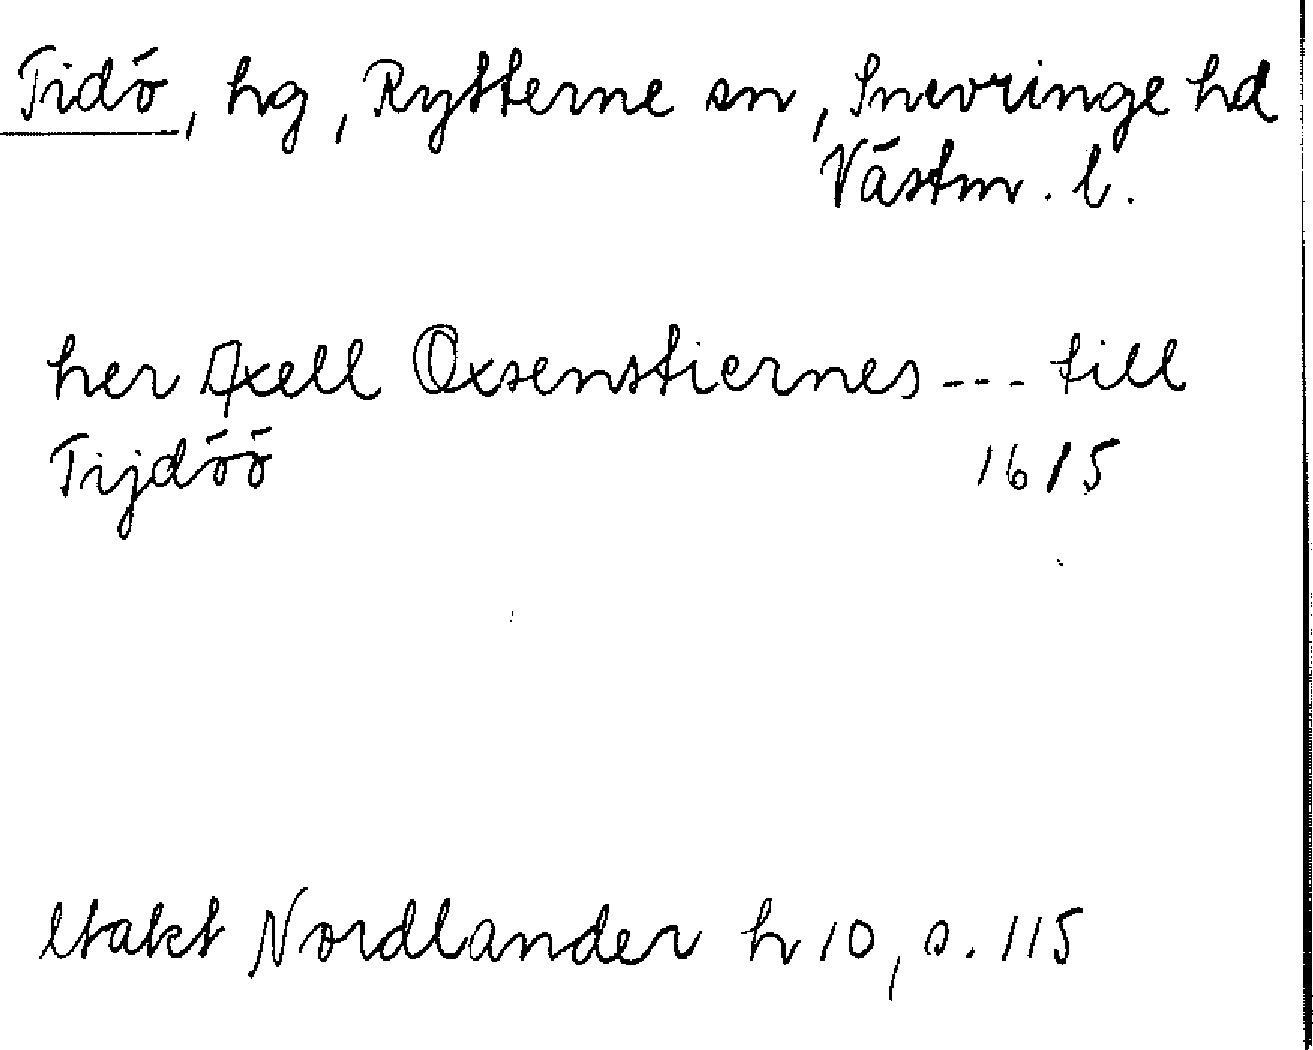 Tidö, hg, Rytterne sn, Snevringe hd
Västm. l.
her Axell Oxsenstiernes --- till
Tijdöö 1615
Utakt Nordlander h 10, s. 115